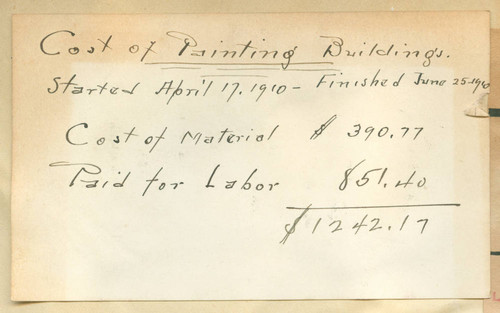 Cost of Painting Buildings.
Started April 17, 1910 - Finished June 25-1910
Cost of Material $ 390.77
Paid for Labor 851.40
$1242.17